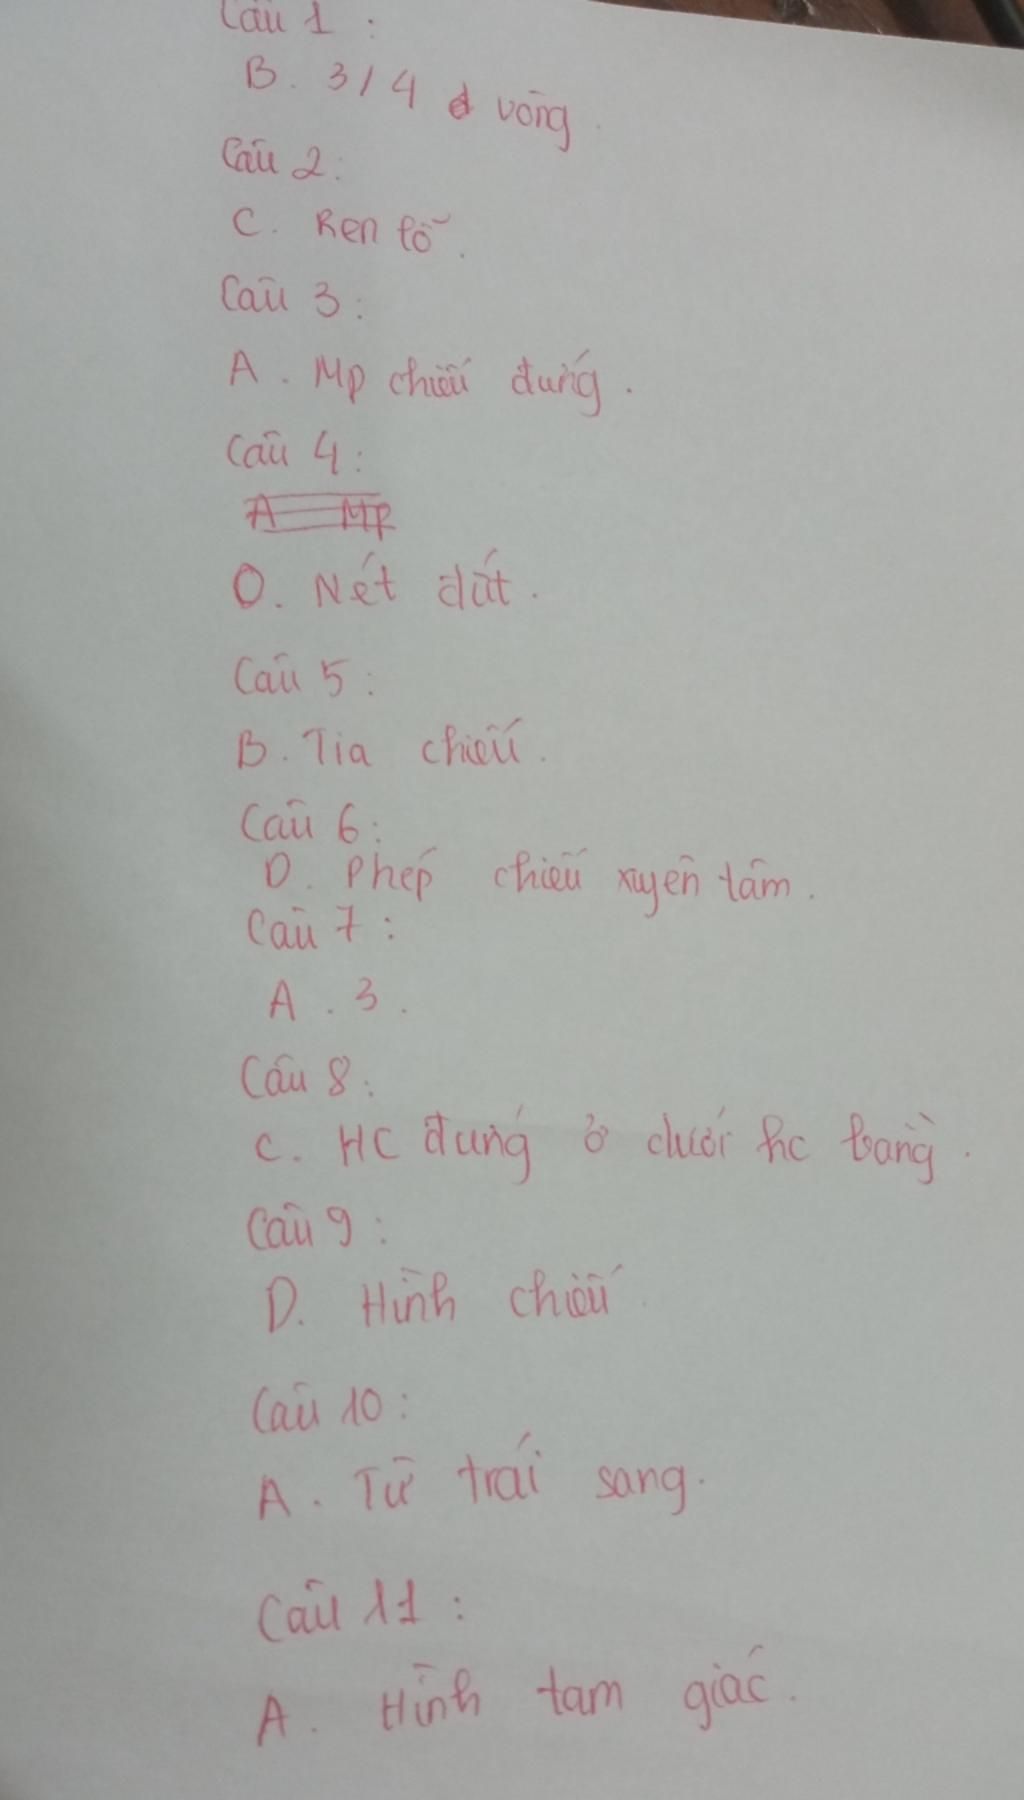 Câu 1 :
B. 3/4 vòng.
Câu 2:
C. Ren lỗ.
Câu 3:
A. Mp chiếu đứng.
Câu 4:
A MP
D. Nét đứt.
Câu 5:
B. Tia chiếu.
Câu 6:
D. Phép chiếu xuyên tâm.
Câu 7:
A. 3.
Câu 8:
C. HC đứng ở dưới hc bằng.
Câu 9:
D. Hình chiếu
Câu 10:
A. Từ trái sang.
Câu 11:
A. Hình tam giác.